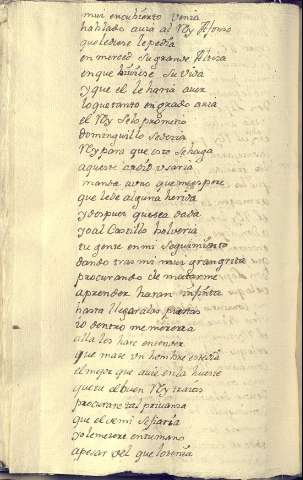 mui encubierto venia
hablado auia al Rey Alfonso
que le diese le pedia
en merced su grande Alteza
en que biuiese su vida
y que el le haria auer
lo que tanto en grado auia
el Rey se lo prometio
dominguillo se deçia
Rey para que esto se haga
aqueste ardid vsaria
manda a vno que me espere
que le de alguna herida
y despues que sea dada
yo al Castillo bolueria
tu gente en mi seguimiento
dando tras mi mui gran grita
procurando de matarme
a prender haran infinta
hasta llegar a las puertas
yo dentro me meteria
alla los hare entender
que mate vn hombre este dia
el mejor que auie en la hueste
que tu el buen Rey traias
procurare tal priuança
que el de mi se fiaria
yo le metere en tu mano
a pesar del que lo tenia